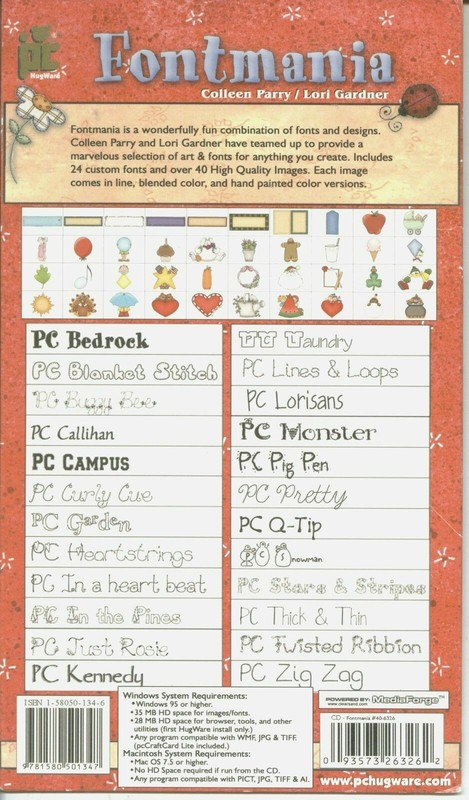 PC
HugWare
Fontmania
Colleen Parry / Lori Gardner
Fontmania is a wonderfully fun combination of fonts and designs.
Colleen Parry and Lori Gardner have teamed up to provide a
marvelous selection of art & fonts for anything you create. Includes
24 custom fonts and over 40 High Quality Images. Each image
comes in line, blended color, and hand painted color versions.
PC Bedrock
PC Blanket Stitch
PC Buzzy Bee
PC Callihan
PC Campus
PC Curly Cue
PC Garden
PC Heartstrings
PC In a heart beat
PC In the Pines
PC Just Rosie
PC Kennedy
PC Laundry
PC Lines & Loops
PC Lorisans
PC Monster
PC Pig Pen
PC Pretty
PC Q-Tip
PC Snowman
PC Stars & Stripes
PC Thick & Thin
PC Twisted Ribbion
PC Zig Zag
ISBN 1-58050-134-6
9 781580 501347
Windows System Requirements:
•Windows 95 or higher.
•35 MB HD space for images/fonts.
•28 MB HD space for browser, tools, and other
utilities (first HugWare install only.)
•Any program compatible with WMF, JPG & TIFF.
(pcCraftCard Lite included.)
Macintosh System Requirements:
•Mac OS 7.5 or higher.
•No HD Space required if run from the CD.
•Any program compatible with PICT, JPG, TIFF & AI.
POWERED BY: MediaForge™
www.clearsand.com
CD - Fontmania #40-6326
0 93573 26326 2
www.pchugware.com